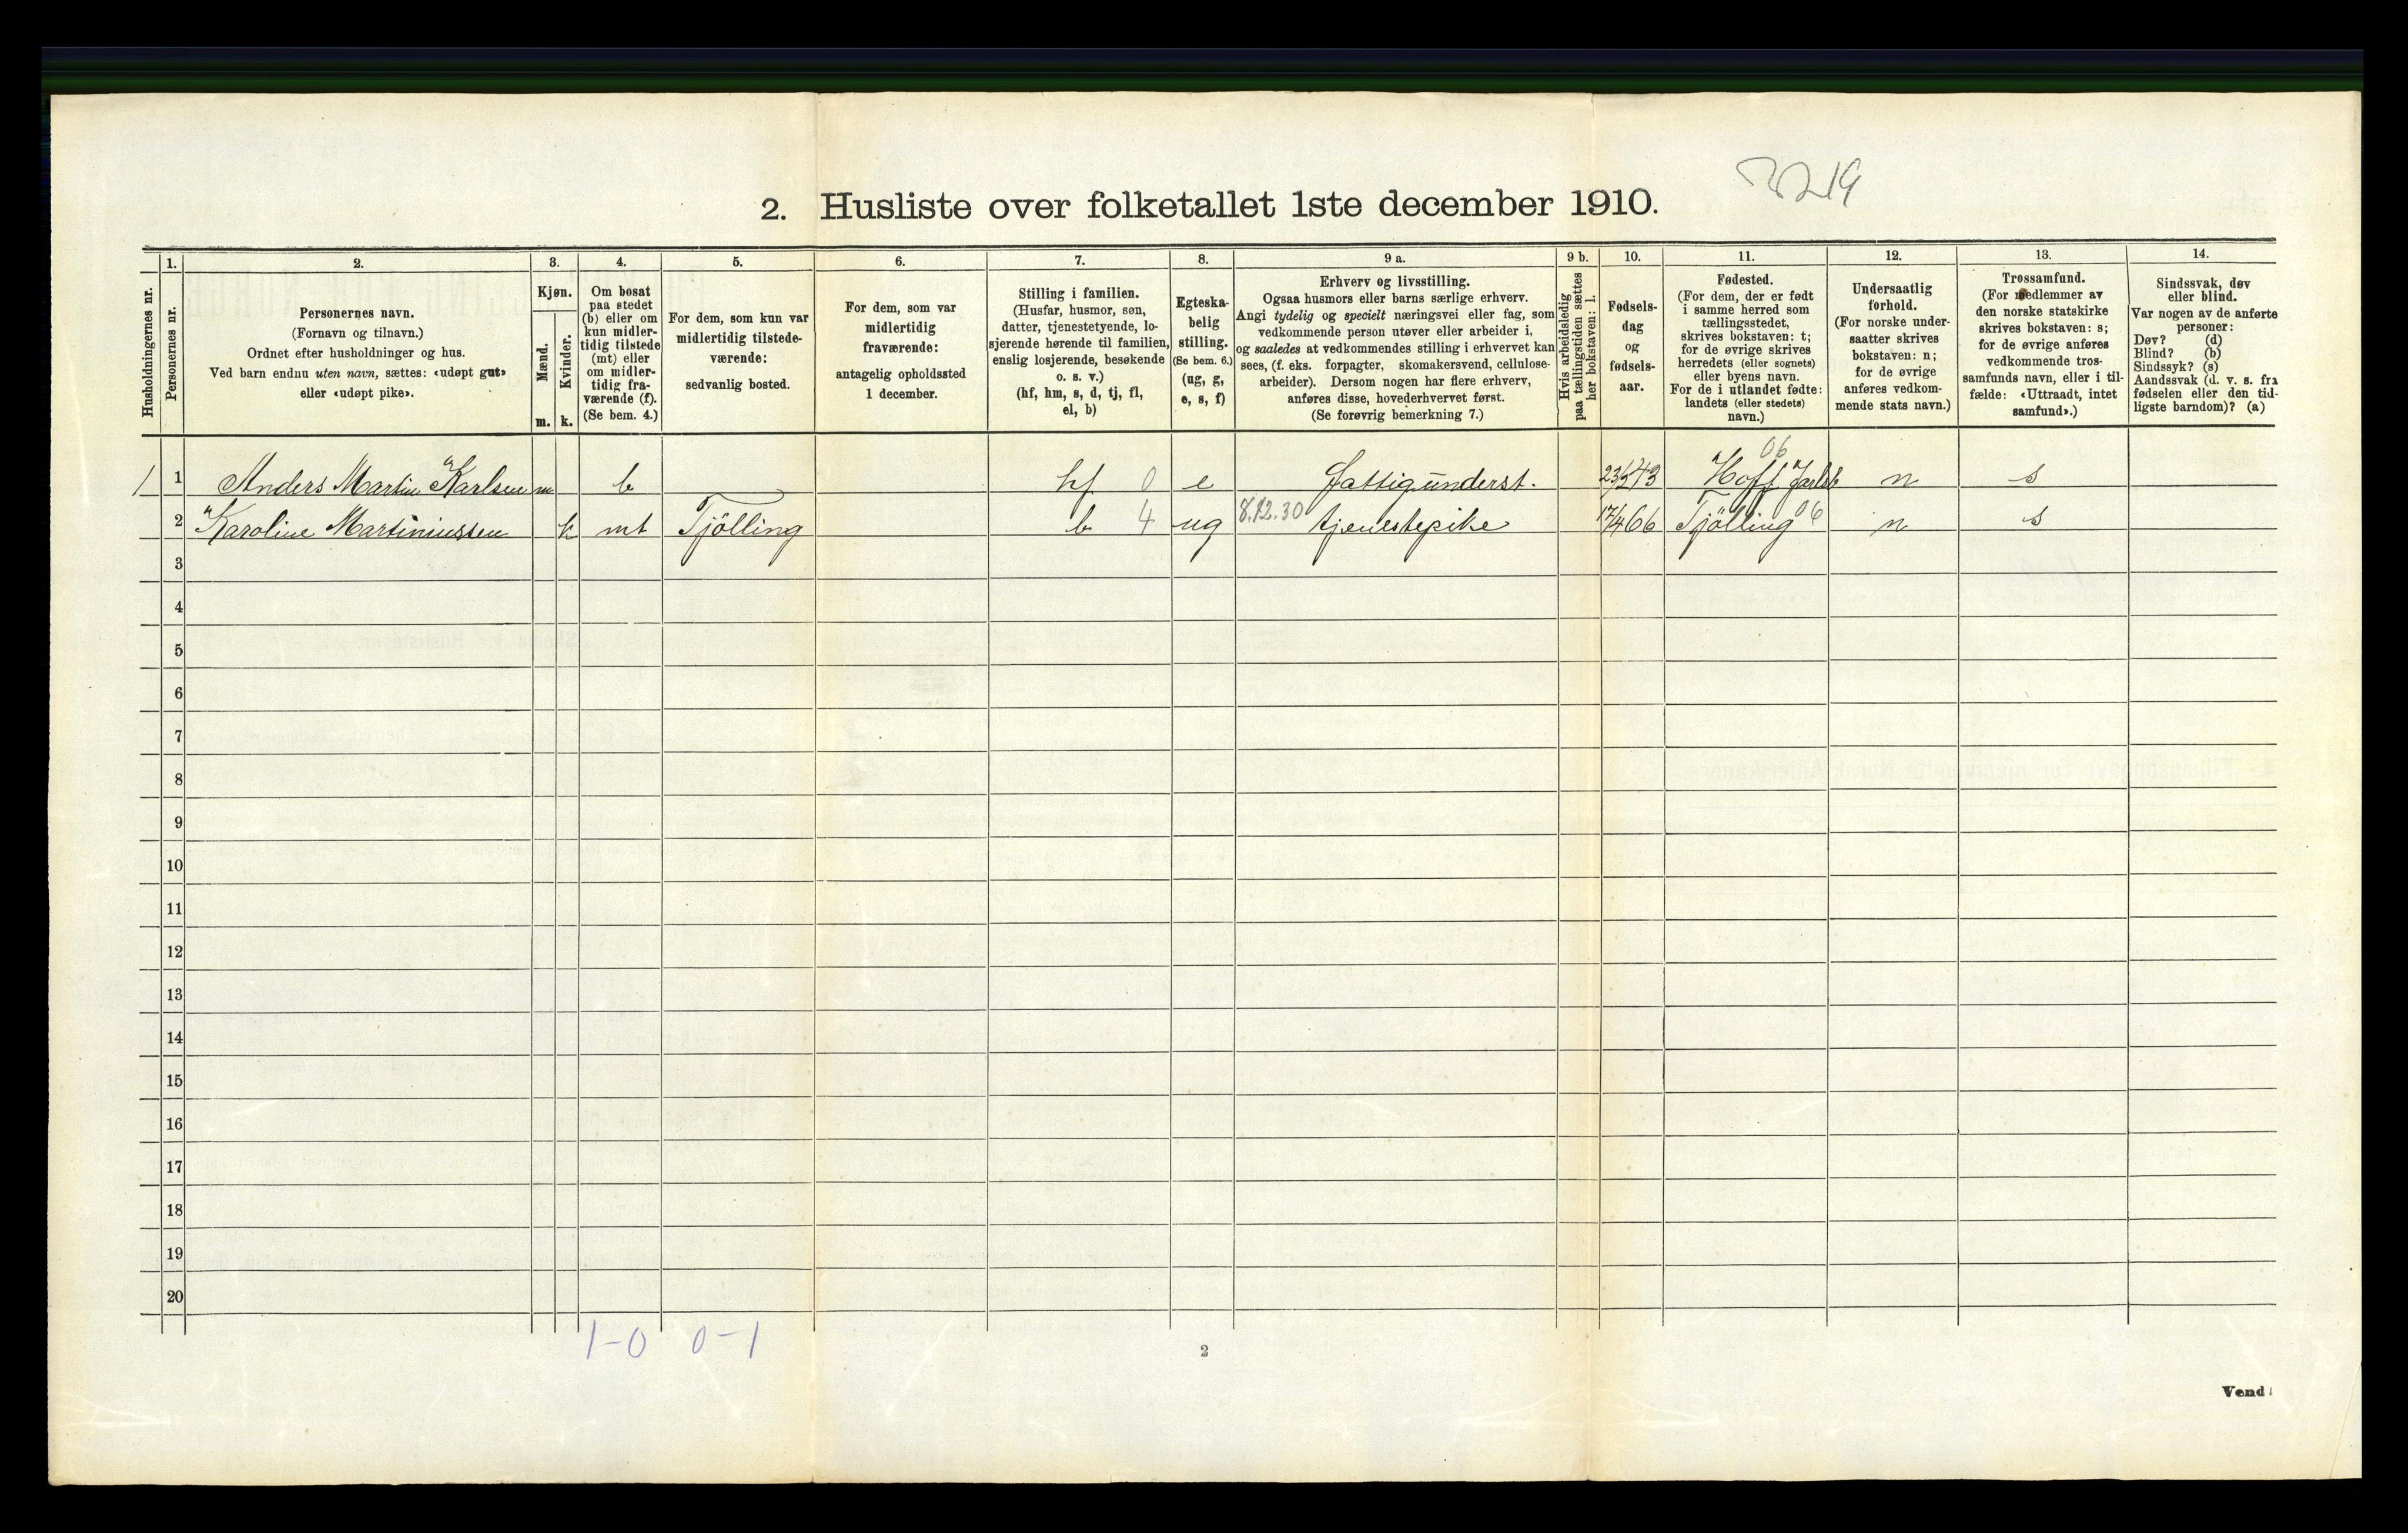 3219
2. Husliste over folketallet 1ste december 1910.
Husholdningernes nr.
1.
Personernes nr.
2.
Personernes navn.
(Fornavn og tilnavn.)
Ordnet efter husholdninger og hus.
Ved barn endnu uten navn, sættes: «udøpt gut»
eller «udøpt pike».
3.
Kjøn.
Mænd.
Kvinder.
m. k.
4.
Om bosat
paa stedet
(b) eller om
kun midler-
tidig tilstede
(mt) eller
om midler-
tidig fra-
værende (f).
(Se bem. 4.)
5.
For dem, som kun var
midlertidig tilstede-
værende:
sedvanlig bosted.
6.
For dem, som var
midlertidig
fraværende:
antagelig opholdssted
1 december.
7.
Stilling i familien.
(Husfar, husmor, søn,
datter, tjenestetyende, lo-
sjerende hørende til familien,
enslig losjerende, besøkende
o. s. v.)
(hf, hm, s, d, tj, fl,
el, b)
8.
Egteska-
belig
stilling.
(Se bem. 6.)
(ug, g,
e, s, f)
9 a.
Erhverv og livsstilling.
Ogsaa husmors eller barns særlige erhverv.
Angi tydelig og specielt næringsvei eller fag, som
vedkommende person utøver eller arbeider i,
og saaledes at vedkommendes stilling i erhvervet kan
sees, (f. eks. forpagter, skomakersvend, cellulose-
arbeider). Dersom nogen har flere erhverv,
anføres disse, hovederhvervet først.
(Se forøvrig bemerkning 7.)
9 b.
Hvis arbeidsledig
paa tællingstiden sættes
her bokstaven: l.
10.
Fødsels-
dag
og
fødsels-
aar.
11.
Fødested.
(For dem, der er født
i samme herred som
tællingsstedet,
skrives bokstaven: t;
for de øvrige skrives
herredets (eller sognets)
eller byens navn.
For de i utlandet fødte:
landets (eller stedets)
navn.)
12.
Undersaatlig
forhold.
(For norske under-
saatter skrives
bokstaven: n;
for de øvrige
anføres vedkom-
mende stats navn.)
13.
Trossamfund.
(For medlemmer av
den norske statskirke
skrives bokstaven: s;
for de øvrige anføres
vedkommende tros-
samfunds navn, eller i til-
fælde: «Uttraadt, intet
samfund».)
14.
Sindssvak, døv
eller blind.
Var nogen av de anførte
personer:
Døv? (d)
Blind? (b)
Sindssyk? (s)
Aandssvak (d. v. s. fra
fødselen eller den tid-
ligste barndom)? (a)
06
1 1 Anders Martin Karlsen m b hf 0 e fattigunderst. Hoff Jarlsb n s
2 Karoline Martiniussen k mt Tjölling b 4 ug 8.12.30 tjenestepike 17/4 66 Tjölling 06 n s
3
4
5
6
7
8
9
10
11
12
13
14
15
16
17
18
19
20
1-0 0-1
2
Vend!